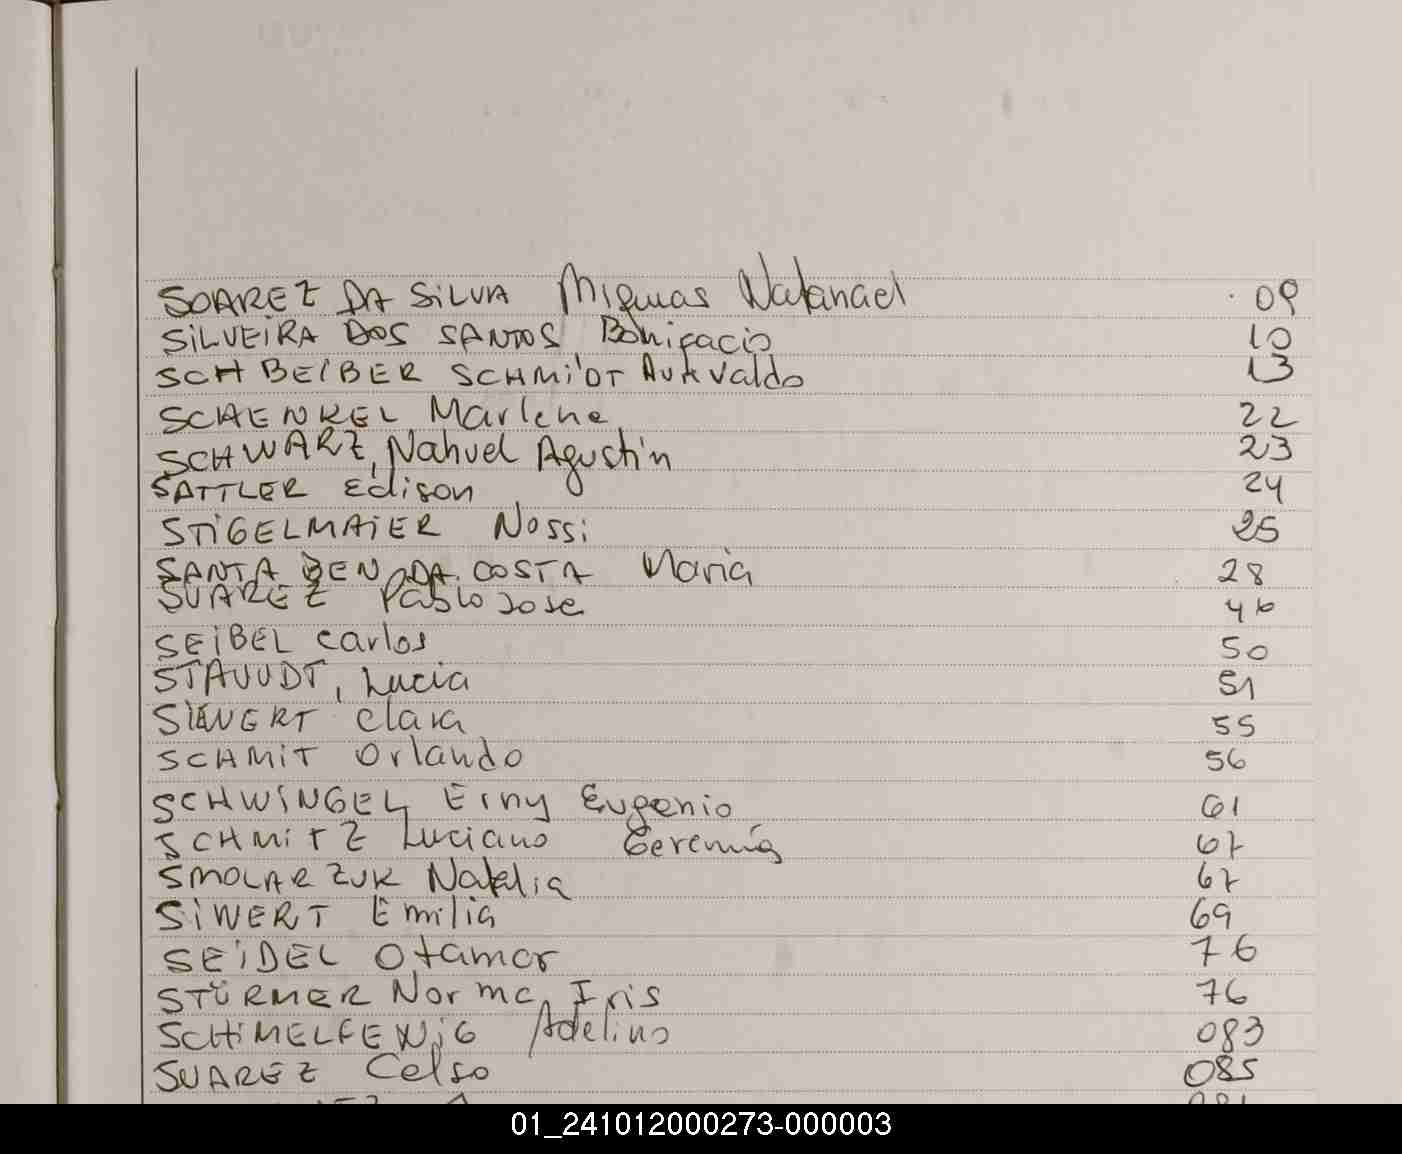 SOAREZ DA SILVA Miqueas Natanael 09
SILVEIRA DOS SANTOS Bonifacio 10
SCHBEIBER SCHMIDT Aurvaldo 13
SCHENKEL Marlene 22
SCHWARZ, Nahuel Agustin 23
SATTLER Edison 24
STIGELMAIER Nossi 25
SANTA BEN DA COSTA Maria 28
SUAREZ Pablo Jose 46
SEIBEL Carlos 50
STAUUDT, Lucia 51
SIEWERT Clara 55
SCHMIT Orlando 56
SCHWINGEL Erny Eugenio 61
SCHMITZ Luciano Geremías 67
SMOLARZUK Natalia 67
SIWERT Emilia 69
SEIDEL Otamor 76
STÜRMER Norma Iris 76
SCHIMELFENIG Adelino 083
SUAREZ Celso 085
01_241012000273-000003